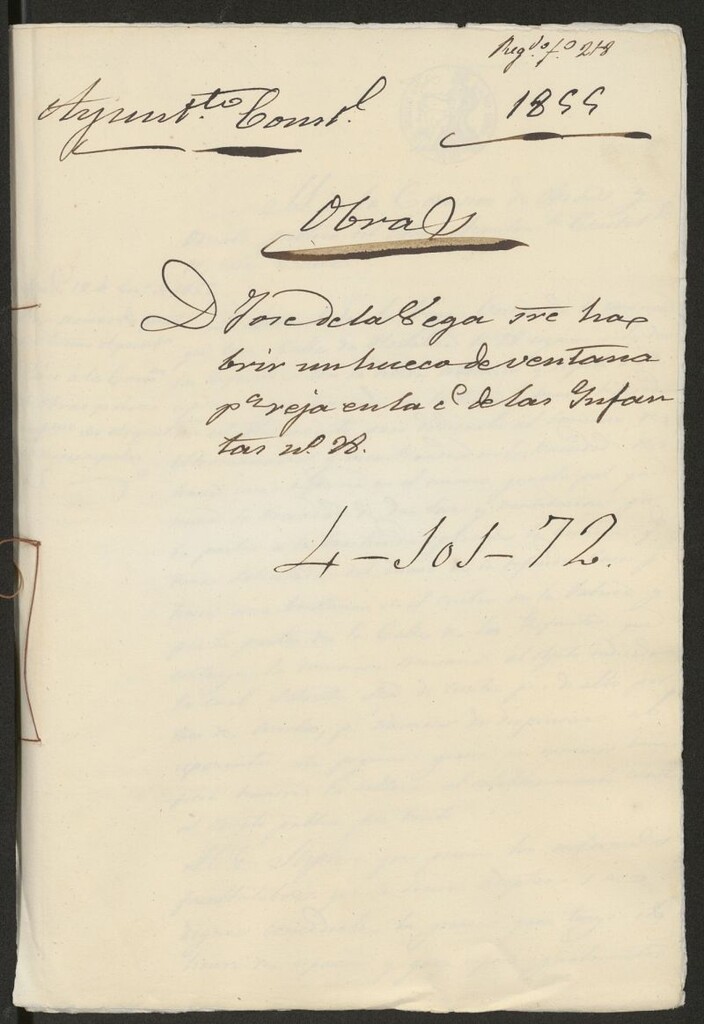 Reg.do f.o 218
Ayunt.to Const.l 1855
Obras
D José de la Vega sre ha
brir un hueco de ventana
p.a reja en la c.e de las Infan
tas n.o 28.
4-101-72.